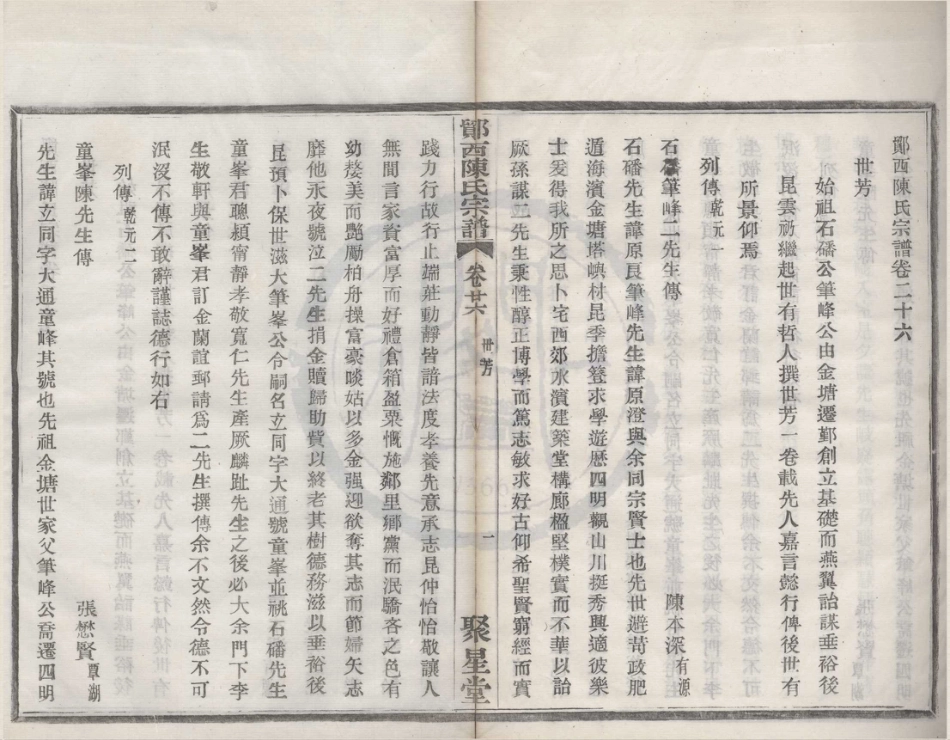 鄮西陳氏宗譜卷二十六
世芳
始祖石磻公筆峰公由金塘遷鄞創立基礎而燕翼詒謀垂裕後
昆雲礽繼起世有哲人撰世芳一卷載先人嘉言懿行俾後世有
所景仰焉
列傳乾元一
石磻筆峰二先生傳 陳本深有源
石磻先生諱原長筆峰先生諱原澄與余同宗賢士也先世避苛政肥
遁海濱金塘塔嶼材昆季擔簦求學遊歷四明觀山川挺秀興適彼樂
士爰得我所之思卜宅西郊水濱建築堂構廊楹堅樸實而不華以詒
厥孫謀二先生秉性醇正博學而篤志敏求好古仰希聖賢窮經而實
鄮西陳氏宗譜 卷廿六 世芳 一 聚星堂
踐力行故行止端莊動靜皆諳法度孝養先意承志昆仲怡怡敬讓人
無間言家資富厚而好禮倉箱盈粟慨施鄰里鄉黨而泯驕吝之色有
幼嫠美而艷勵柏舟操富豪啖姑以多金强迎欲奪其志而節婦矢志
靡他永夜號泣二先生捐金贖歸助貲以終老其樹德務滋以垂裕後
昆預卜保世滋大筆峯公令嗣名立同字大通號童峯並祧石磻先生
童峯君聰穎甯靜孝敬寬仁先生產厥麟趾先生之後必大余門下李
生敬軒與童峯君訂金蘭誼郵請爲二先生撰傳余不文然令德不可
泯沒不傳不敢辭謹誌德行如右
列傳乾元二
童峯陳先生傳 張懋賢覃湖
先生諱立同字大通童峰其號也先祖金塘世家父筆峰公喬遷四明